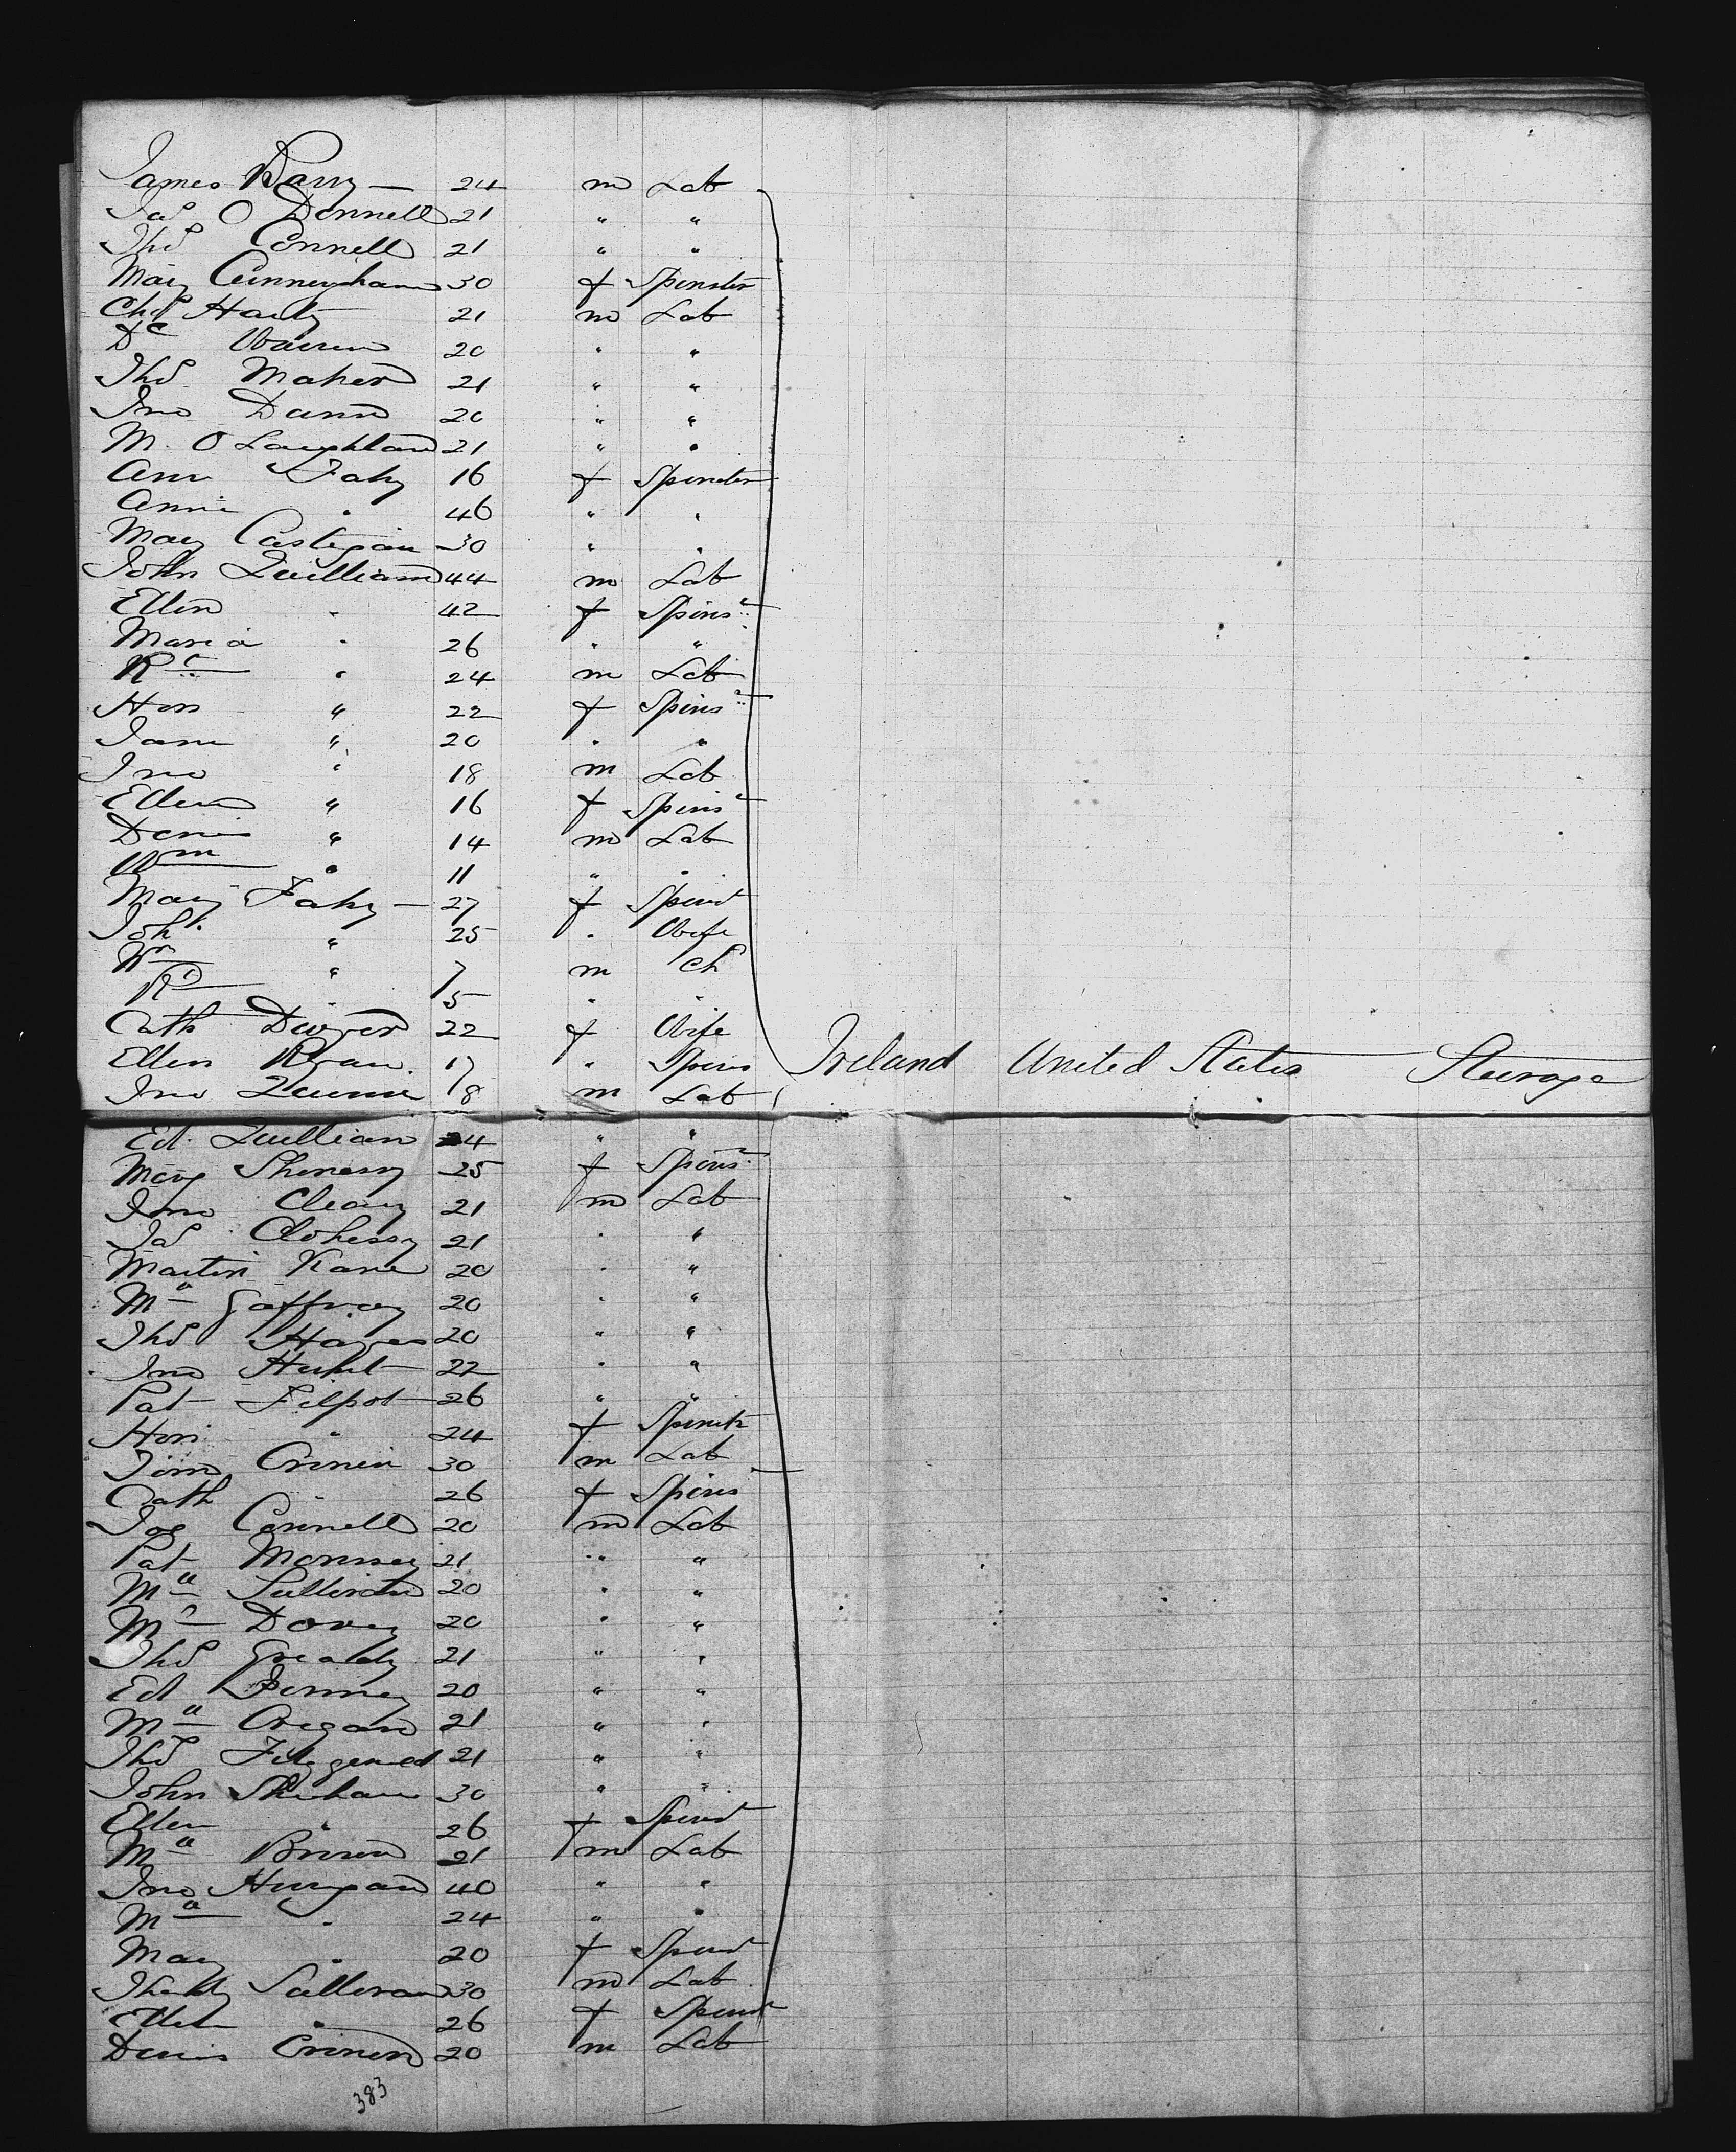 James Barry — 24 m Lab
Jas O Donnell 21 " "
Thos Connell 21 " "
Mary Cunningham 30 f Spinster
Chas Harty 21 m Lab
Dl Warren 20 " "
Thos Maher 21 " "
Jno Dunn 20 " "
M. O Laughlan 21 " "
Ann Fahy 16 f Spinster
Annie " 46 " "
Mary Costigan 30 " "
John Quillian 44 m Lab
Ellen " 42 f Spinsr
Maria " 26 " "
Rd " 24 m Lab
Hon " 22 f Spinsr
Jane " 20 " "
Jno " 18 m Lab
Ellen " 16 f Spinsr
Denis " 14 m Lab
Wm " 11 " "
Mary Fahy — 27 f Spinst
Joh " 25 " Wife
Wm " 7 m Ch
Rd " 5 " "
Cath Dwyer 22 f Wife
Ellen Ryan 17 " Spins Ireland United States Steerage
Jno Quinn 18 m Lab
Ed. Quillian 24 " "
Mary Shinessy 25 f Spinsr
Jno Cleary 21 m Lab
Jas Clohessy 21 " "
Martin Kane 20 " "
Ml Gaffney 20 " "
Thos Hayes 20 " "
Jno Hunt 22 " "
Pat Filpot 26 " "
Hon " 24 f Spinstr
Tim Cronin 30 m Lab
Cath " 26 f Spins
Joe Connell 20 m Lab
Pat Morrissey 21 " "
Ml Sullivan 20 " "
Ml Dorey 20 " "
Thos Grealdy 21 " "
Ed Finney 20 " "
Ml Cregan 21 " "
Thos Fitzgerald 21 " "
John Shehan 30 " "
Ellen " 26 f Spinst
Ml Brown 21 m Lab
Jno Hurgan 40 " "
Ml " 24 " "
Mary " 20 f Spinst
Sullivan 30 m Lab
Ellen " 26 f Spinst
Denis Cronin 20 m Lab
383